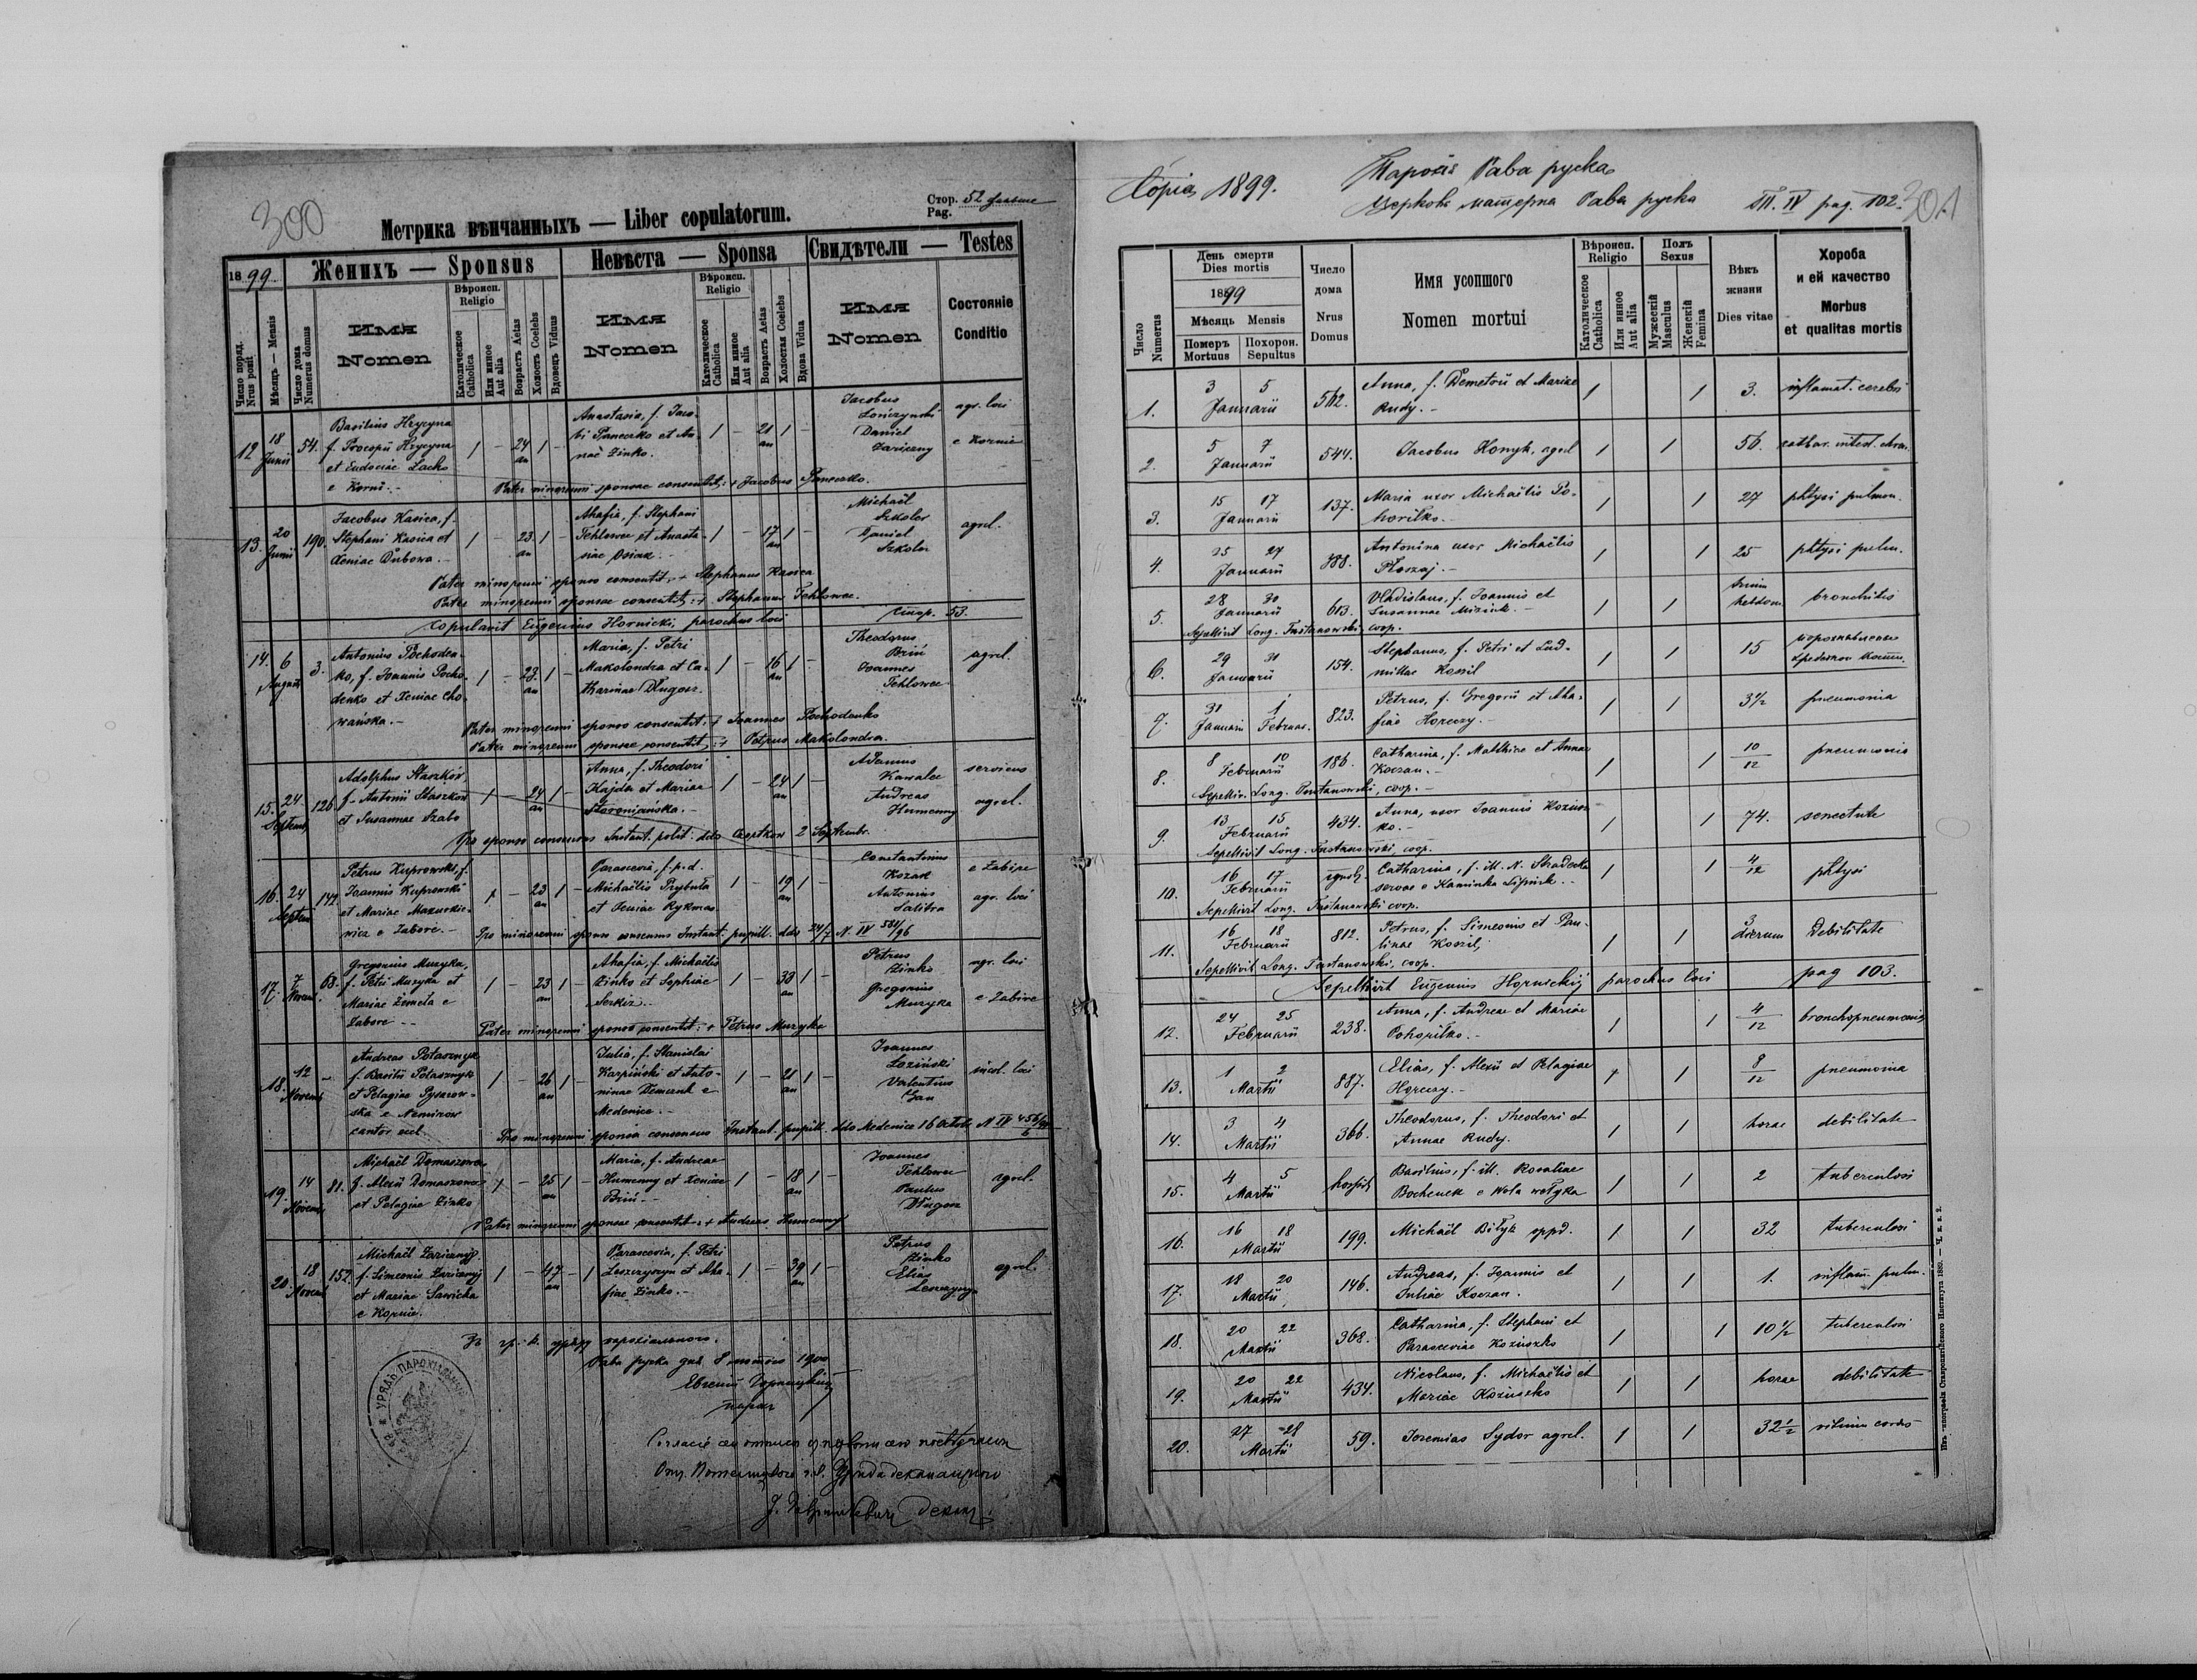 300
Стор. 52 дальше
Pag.
Метрика вѣнчанныхъ — Liber copulatorum.
1899
Женихъ — Sponsus
Невѣста — Sponsa
Свидѣтели — Testes
Число поряд.
Nrus posit
Мѣсяць — Mensis
Число дома
Numerus domus
Имя
Nomen
Вѣроисп.
Religio
Католическое
Catholica
Или инное
Aut alia
Возрастъ Aetas
Холостъ Coelebs
Вдовецъ Viduus
Имя
Nomen
Вѣроисп.
Religio
Католическое
Catholica
Или инное
Aut alia
Возрастъ Aetas
Холостая Coelebs
Вдова Vidua
Имя
Nomen
Состояніе
Conditio
12 18 Junii 54.
Basilius Hrycyna
f. Procopii Hrycyna
et Eudociae Lacko
e Korni.-
1 - 24 an 1 -
Anastasia, f. Jaco-
bi Paneczko et An-
nae Zinko.
1 - 21 an 1 -
Jacobus
Daniel
Zariczny
agr. loci
e Kornie
Pater minorenni sponsae consentit: + Jacobus Paneczko.
13. 20 Junii 190.
Jacobus Kasica, f.
Stephani Kasica et
Xeniae Dubowa.-
1 - 23 an 1 -
Ahafia, f. Stephani
Tehlowec et Anasta-
siae
1 - 17 an 1 -
Michaël
Szkoler
Daniel
Szkoler
agrel.
Pater minorenni sponso consentit: + Stephanus Kasica
Pater minorenni sponsae consentit: + Stephanus Tehlowec.
Copulavit Eugenius Hornicki, parochus loci
Стор. 53.
14. 6 Augusti 3.
Antonius Pochoden-
ko, f. Joannis Pocho-
denko et Xeniae Cho-
wańska.-
1 - 23 an 1 -
Maria, f. Petri
Makolondra et Ca-
tharinae Długosz.
1 - 16 an 1 -
Theodorus
Briń
Joannes
Tehlowec
agrel.
Pater minorenni sponso consentit: + Joannes Pochodenko
Pater minorenni sponsae consentit: + Petrus Makolondra.
15. 24. Septemb. 126
Adolphus Staszków
f. Antonii Staszków
et Susannae Szabo
1 - 24 an 1 -
Anna, f. Theodori
Kajda et Mariae
1 - 24 an 1 -
Adamus
Kawalec
Andreas
Humenny
servicus
agrel.
Pro sponso consensus Instant. polit. ddo Czortkow 2 Septembr.
16. 24 Septem 142
Petrus Kuprowski, f.
Joannis Kuprowski
et Mariae Mazurkie-
wicz e Zaborc.-
1 - 23 an 1 -
Parascevia, f. p. d.
Michaëlis Prybuła
et Xeniae Rykmas
1 - 19 an 1 -
Constantinus
Kozak
Antonius
Salitra
e Zabire
agr. loci
Pro minorenni sponso consensus Instant. pupill. ddo 24/7 N. IV 584/96
17. 7 Novem. 68.
Gregorius Muzyka,
f. Petri Muzyka et
Mariae Zemeła e
Zaborc --
1 - 23 an 1 -
Ahafia, f. Michaëlis
Zinko et Sophiae
Serkiz.-
1 - 33 an 1 -
Petrus
Zinko
Gregorius
Muzyka
agr. loci
e Zabire
Pater minorenni sponso consentit: + Petrus Muzyka
18. 12 Novemb -
Andreas Potasznyk
f. Basilii Potasznyk
et Pelagiae Pysarow-
ska e Nemirow
cantor eccl.
1 - 26 an 1 -
Julia, f. Stanislai
Karpiński et Anto-
ninae Demczuk e
Medenice.-
1 - 21 an 1 -
Joannes
Łoziński
Valentinus
Gan
incol. loci
Pro minorenni sponsa consensus Instant. pupill. ddo Medenice 16 Octob N IV
19. 14 Novemb 81.
Michaël Domaszowec
f. Alexii Domaszowec
et Pelagiae Zinko
1 - 25 an 1 -
Maria, f. Andreae
Humenny et Xeniae
Briń.-
1 - 18 an 1 -
Joannes
Tehlowec
Paulus
Długosz
agrel.
Pater minorenni sponsae consentit: + Andreas Humenny
20. 18 Novemb 152.
Michaël Zaricznyj
f. Simeonis Zaricznyj
et Mariae Sawicka
e Kornie.
1 - 47 an - 1
Parascevia, f. Petri
Leszczyszyn et Aha-
fiae Zinko.-
1 - 39 an 1 -
Petrus
Zinko
Elias
agrel.
Зъ гр. к. уряду парохіяльного.
Рава руска дня 8 1900
Евгеній Горницкій
парох
УРЯДЪ ПАРОХІАЛЬНЫЙ
декан
Copia 1899.
Парохія Рава руска
Церковь матерна Рава руска
Т. IV pag. 102.
301
Число
Numerus
День смерти
Dies mortis
1899
Мѣсяць Mensis
Померъ
Mortuus
Похорон.
Sepultus
Число
дома
Nrus
Domus
Имя усопшого
Nomen mortui
Вѣроисп.
Religio
Католическое
Catholica
Или инное
Aut alia
Полъ
Sexus
Мужескій
Masculus
Женскій
Femina
Вѣкъ
жизни
Dies vitae
Хороба
и ей качество
Morbus
et qualitas mortis
1. 3 5 Januarii 562. Anna, f. Demetrii et Mariae
Rudy.- 1 1 3. inflamat. cerebri
2. 5 7 Januarii 544. Jacobus Konyk, agrel 1 1 56. cathar. intest. chron.
3. 15 17 Januarii 137. Maria uxor Michaëlis Po-
horilko.- 1 1 27 phtysi pulmon.
4. 25 27 Januarii 388. Antonina uxor Michaëlis
Płoszaj.- 1 1 25 phtysi pulm.
5. 28 30 Januarii 613. Vladislaus, f. Joannis et
Susannae 1 1 trium
hebdom bronchitis
Sepelivit Long. Pastanowski, coop.
6. 29 31 Januarii 154. Stephanus, f. Petri et Lud-
millae Kossil 1 1 15
7. 31 Januarii 1 Februar. 823. Petrus, f. Gregorii et Aha-
fiae Horeczy.- 1 1 3 1/2 pneumonia
8. 8 10 Februarii 186. Catharina, f. Matthiae et Annae
Koczan.- 1 1 10/12 pneumonia
Sepelliv. Long. Pastanowski, coop.-
9. 13 15 Februarii 434. Anna, uxor Joannis Koziusz-
ko.- 1 1 74. senectute
Sepellivit Long. Pastanowski, coop.
10. 16 17 Februarii Catharina, f. ill. N. Stradecka
servae e Kaminka Lipnik.- 1 1 4/12 phtysi
Sepellivit Long. Pastanowski coop.
11. 16 18 Februarii 812. Petrus, f. Simeonis et Pau-
linae Kossil 1 1 3
dierum Debilitate
Sepellivit Long. Pastanowski, coop.
Sepellivit Eugenius Hornickij parochus loci pag 103.
12. 24 25 Februarii 238. Anna, f. Andreae et Mariae
Pohoriłko.- 1 1 4/12 bronchopneumonia
13. 1 2 Martii 887. Elias, f. Alexii et Pelagiae
Horeczy.- 1 1 8/12 pneumonia
14. 3 4 Martii 366. Theodorus, f. Theodori et
Annae Rudy. 1 1 horae debilitate
15. 4 5 Martii hospit. Basilius, f. ill. Rosaliae
Bochenek e Wola wełyka 1 1 2 tuberculosi
16. 16 18 Martii 199. Michaël Biłyk oppd. 1 1 32 tuberculosi
17. 18 20 Martii 146. Andreas, f. Joannis et
Juliae Koczan. 1 1 1. inflam. pulm.
18. 20 22 Martii 368. Catharina, f. Stephani et
Parasceviae Koziuszko 1 1 10 1/2 tuberculosi
19. 20 22 Martii 434. Nicolaus, f. Michaëlis et
Mariae Koziuszko 1 1 horae debilitate
20. 27 28 Martii 59. Jeremias Sydor agrel. 1 1 32 1/2 vitium cordis
Изъ типографіи Ставропигійского Института 1889. — Ч. к. в. 2.